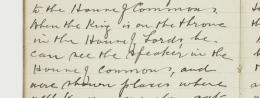 to the House of Commons.
When the King is on the throne
in the House of Lords he
can see the Speaker in the
House of Commons, and
more shown places where